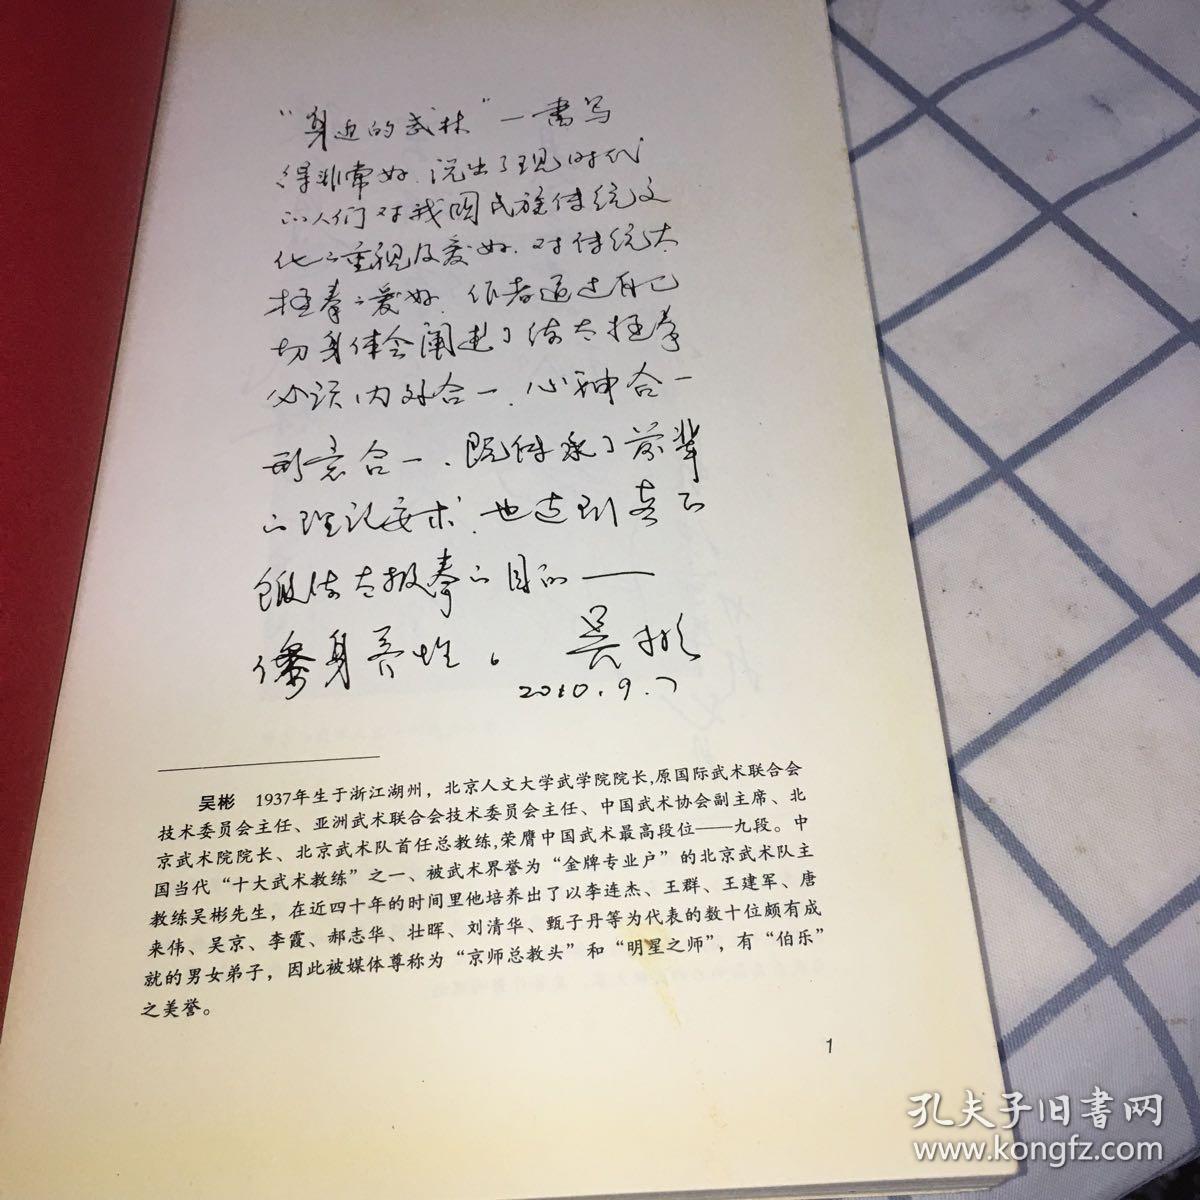 “身边的武林”一书写
得非常好.说出了现时代
的人们对我国民族传统文
化的重视及爱好.对传统太
极拳之爱好.作者通过自己
切身体会阐述了练太极拳
必须内外合一.心神合一
形意合一.既传承了前辈
的理论要求.也达到真正
锻练太极拳的目的——
修身养性。 吴彬
2010.9.7
吴彬 1937年生于浙江湖州，北京人文大学武学院院长,原国际武术联合会
技术委员会主任、亚洲武术联合会技术委员会主任、中国武术协会副主席、北
京武术院院长、北京武术队首任总教练,荣膺中国武术最高段位——九段。中
国当代“十大武术教练”之一、被武术界誉为“金牌专业户”的北京武术队主
教练吴彬先生，在近四十年的时间里他培养出了以李连杰、王群、王建军、唐
来伟、吴京、李霞、郝志华、壮晖、刘清华、甄子丹等为代表的数十位颇有成
就的男女弟子，因此被媒体尊称为“京师总教头”和“明星之师”，有“伯乐”
之美誉。
1
孔夫子旧书网
www.kongfz.com